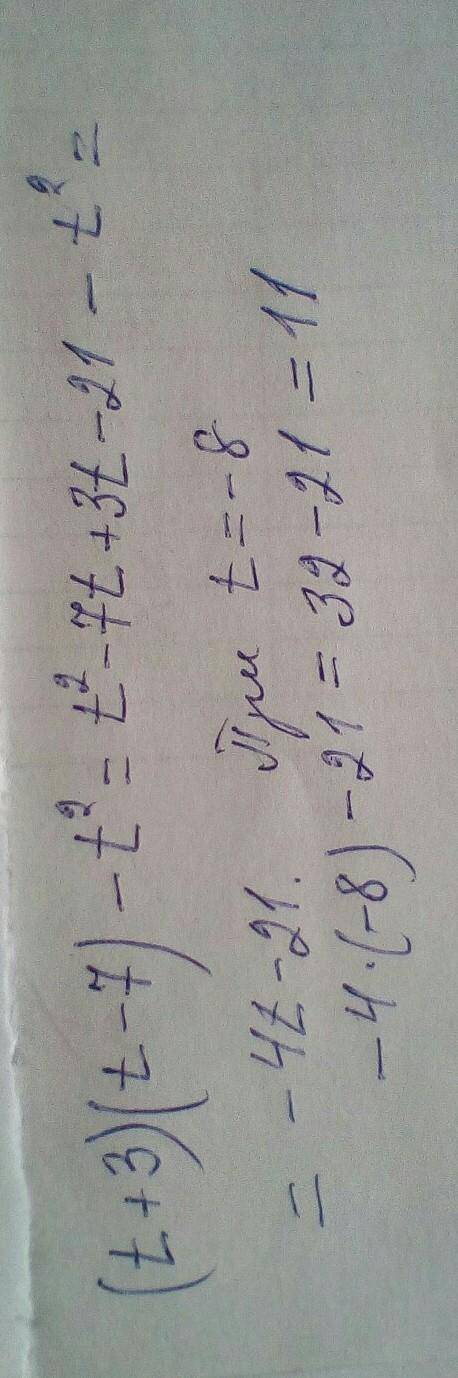 (t+3)(t-7)-t²=t²-7t+3t-21-t²=
=-4t-21. При t=-8
-4·(-8)-21=32-21=11